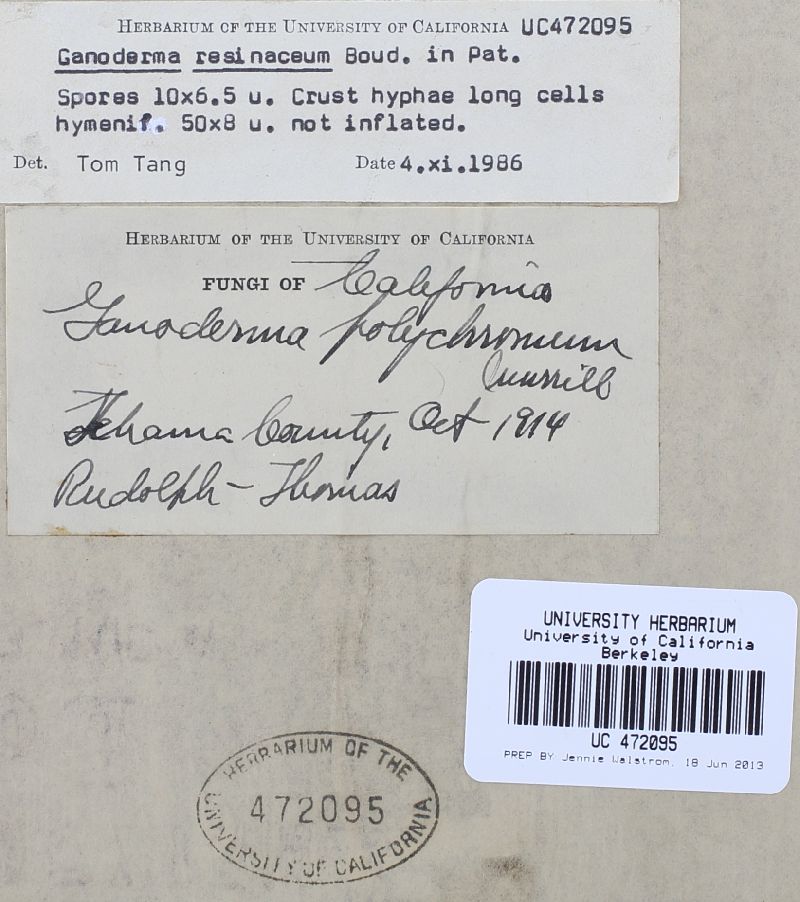 HERBARIUM OF THE UNIVERSITY OF CALIFORNIA UC472095
Ganoderma resinaceum Boud. in Pat.
Spores 10x6.5 u. Crust hyphae long cells
hymenif. 50x8 u. not inflated.
Det. Tom Tang Date 4.xi.1986
HERBARIUM OF THE UNIVERSITY OF CALIFORNIA
FUNGI OF California
Ganoderma polychromum
Murrill
Tehama County, Oct 1914
Rudolph - Thomas
UNIVERSITY HERBARIUM
University of California
Berkeley
UC 472095
PREP BY Jennie Walstrom, 18 Jun 2013
HERBARIUM OF THE
472095
UNIVERSITY OF CALIFORNIA